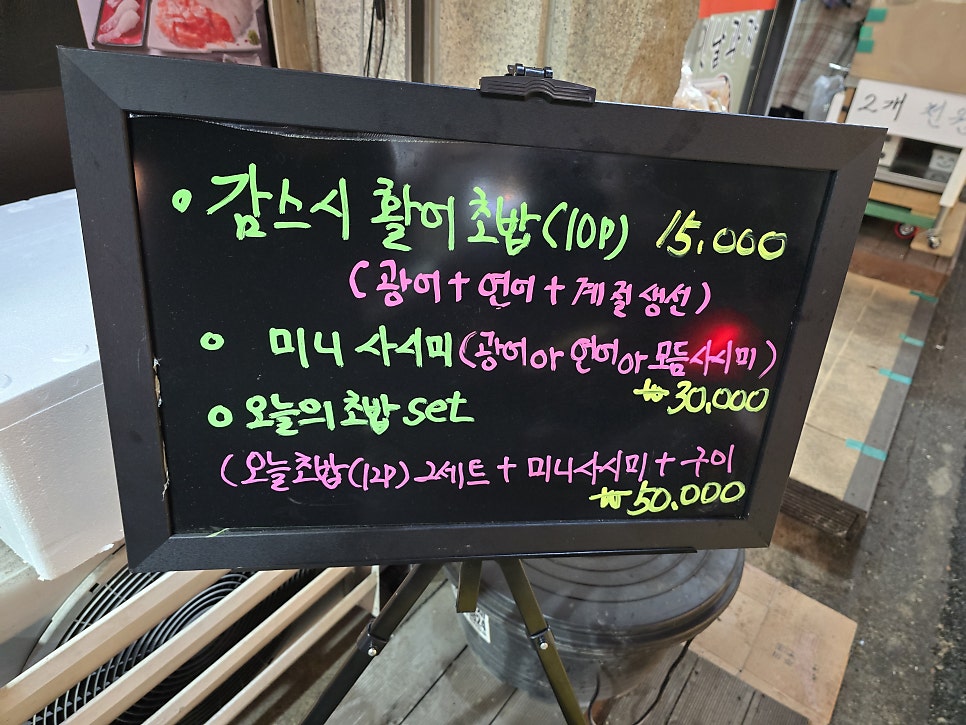 • 감스시 활어초밥(10P) 15,000
(광어+연어+계절생선)
• 미니 사시미(광어or 연어or 모듬사시미)
₩30,000
• 오늘의초밥 set
(오늘초밥(12P) 2세트 + 미니사시미 + 구이
₩50,000
2개 천원